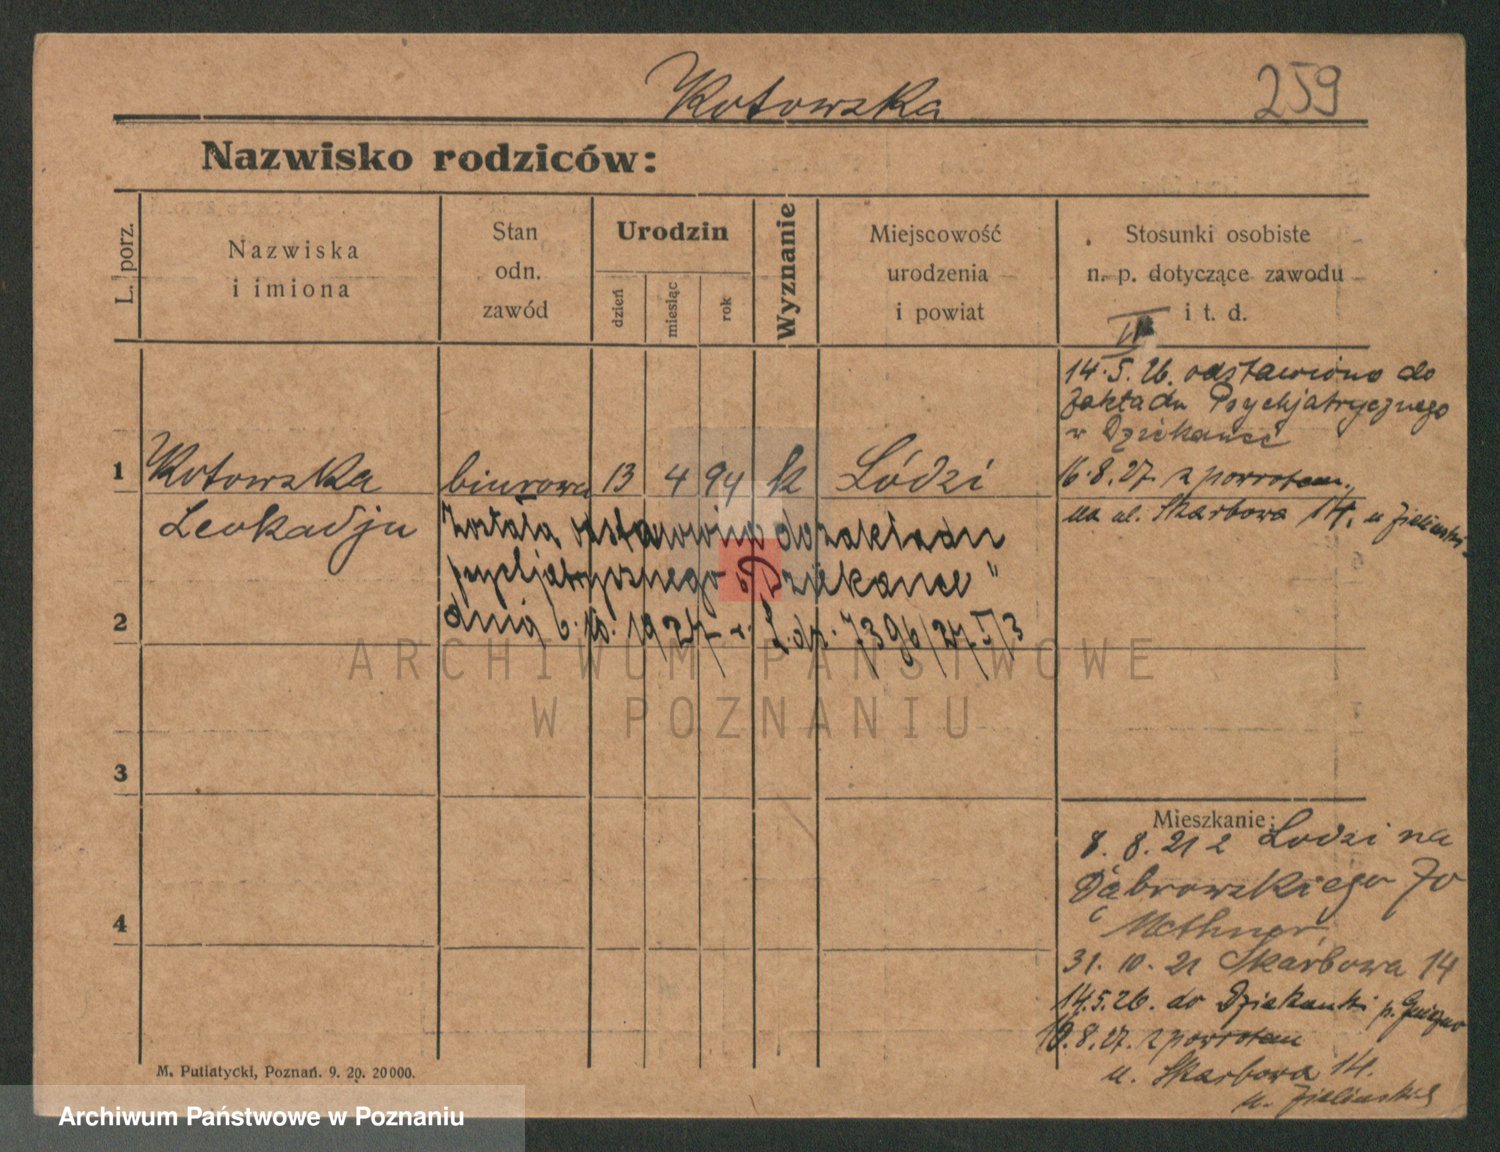 Kotowska
259
Nazwisko rodziców:
L. porz.
Nazwiska
i imiona
Stan
odn.
zawód
Urodzin
dzień
miesiąc
rok
Wyznanie
Miejscowość
urodzenia
i powiat
Stosunki osobiste
n. p. dotyczące zawodu
i t. d.
14.5.26. odstawiono do
Zakładu Psychjatrycznego
w Dziekance
1 Kotowska biurowa 13 4 94 k Łódzi
16.8.27. z powrotem
Leokadju
na ul. Skarbowa 14. u Zielińskiej
Została odstawiona do zakładu
psychjatrycznego "Dziekance"
dnia 6. 10. 1927 r. L. dz. 7396/27 I/3
2
3
4
Mieszkanie:
8. 8. 21 z Łodzi na
Dąbrowskiego 70
31. 10. 21 Skarbowa 14
14.5.26. do Dziekanki p. Gniezno
16.8.27. z powrotem
u. Skarbowa 14.
u. Zielińskiej
M. Putiatycki, Poznań. 9. 20. 20000.
ARCHIWUM PAŃSTWOWE
W POZNANIU
Archiwum Państwowe w Poznaniu